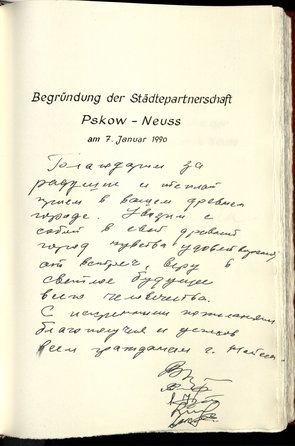 Begründung der Städtepartnerschaft
Pskow - Neuss
am 7. Januar 1990
Благодарим за
радушие и теплый
прием в вашем древнем
городе. Увозим с
собой в свой древний
город чувства
от встреч, веру в
светлое будущее
всего человечества.
С искренними пожеланиями
благополучия и успехов
всем гражданам г.